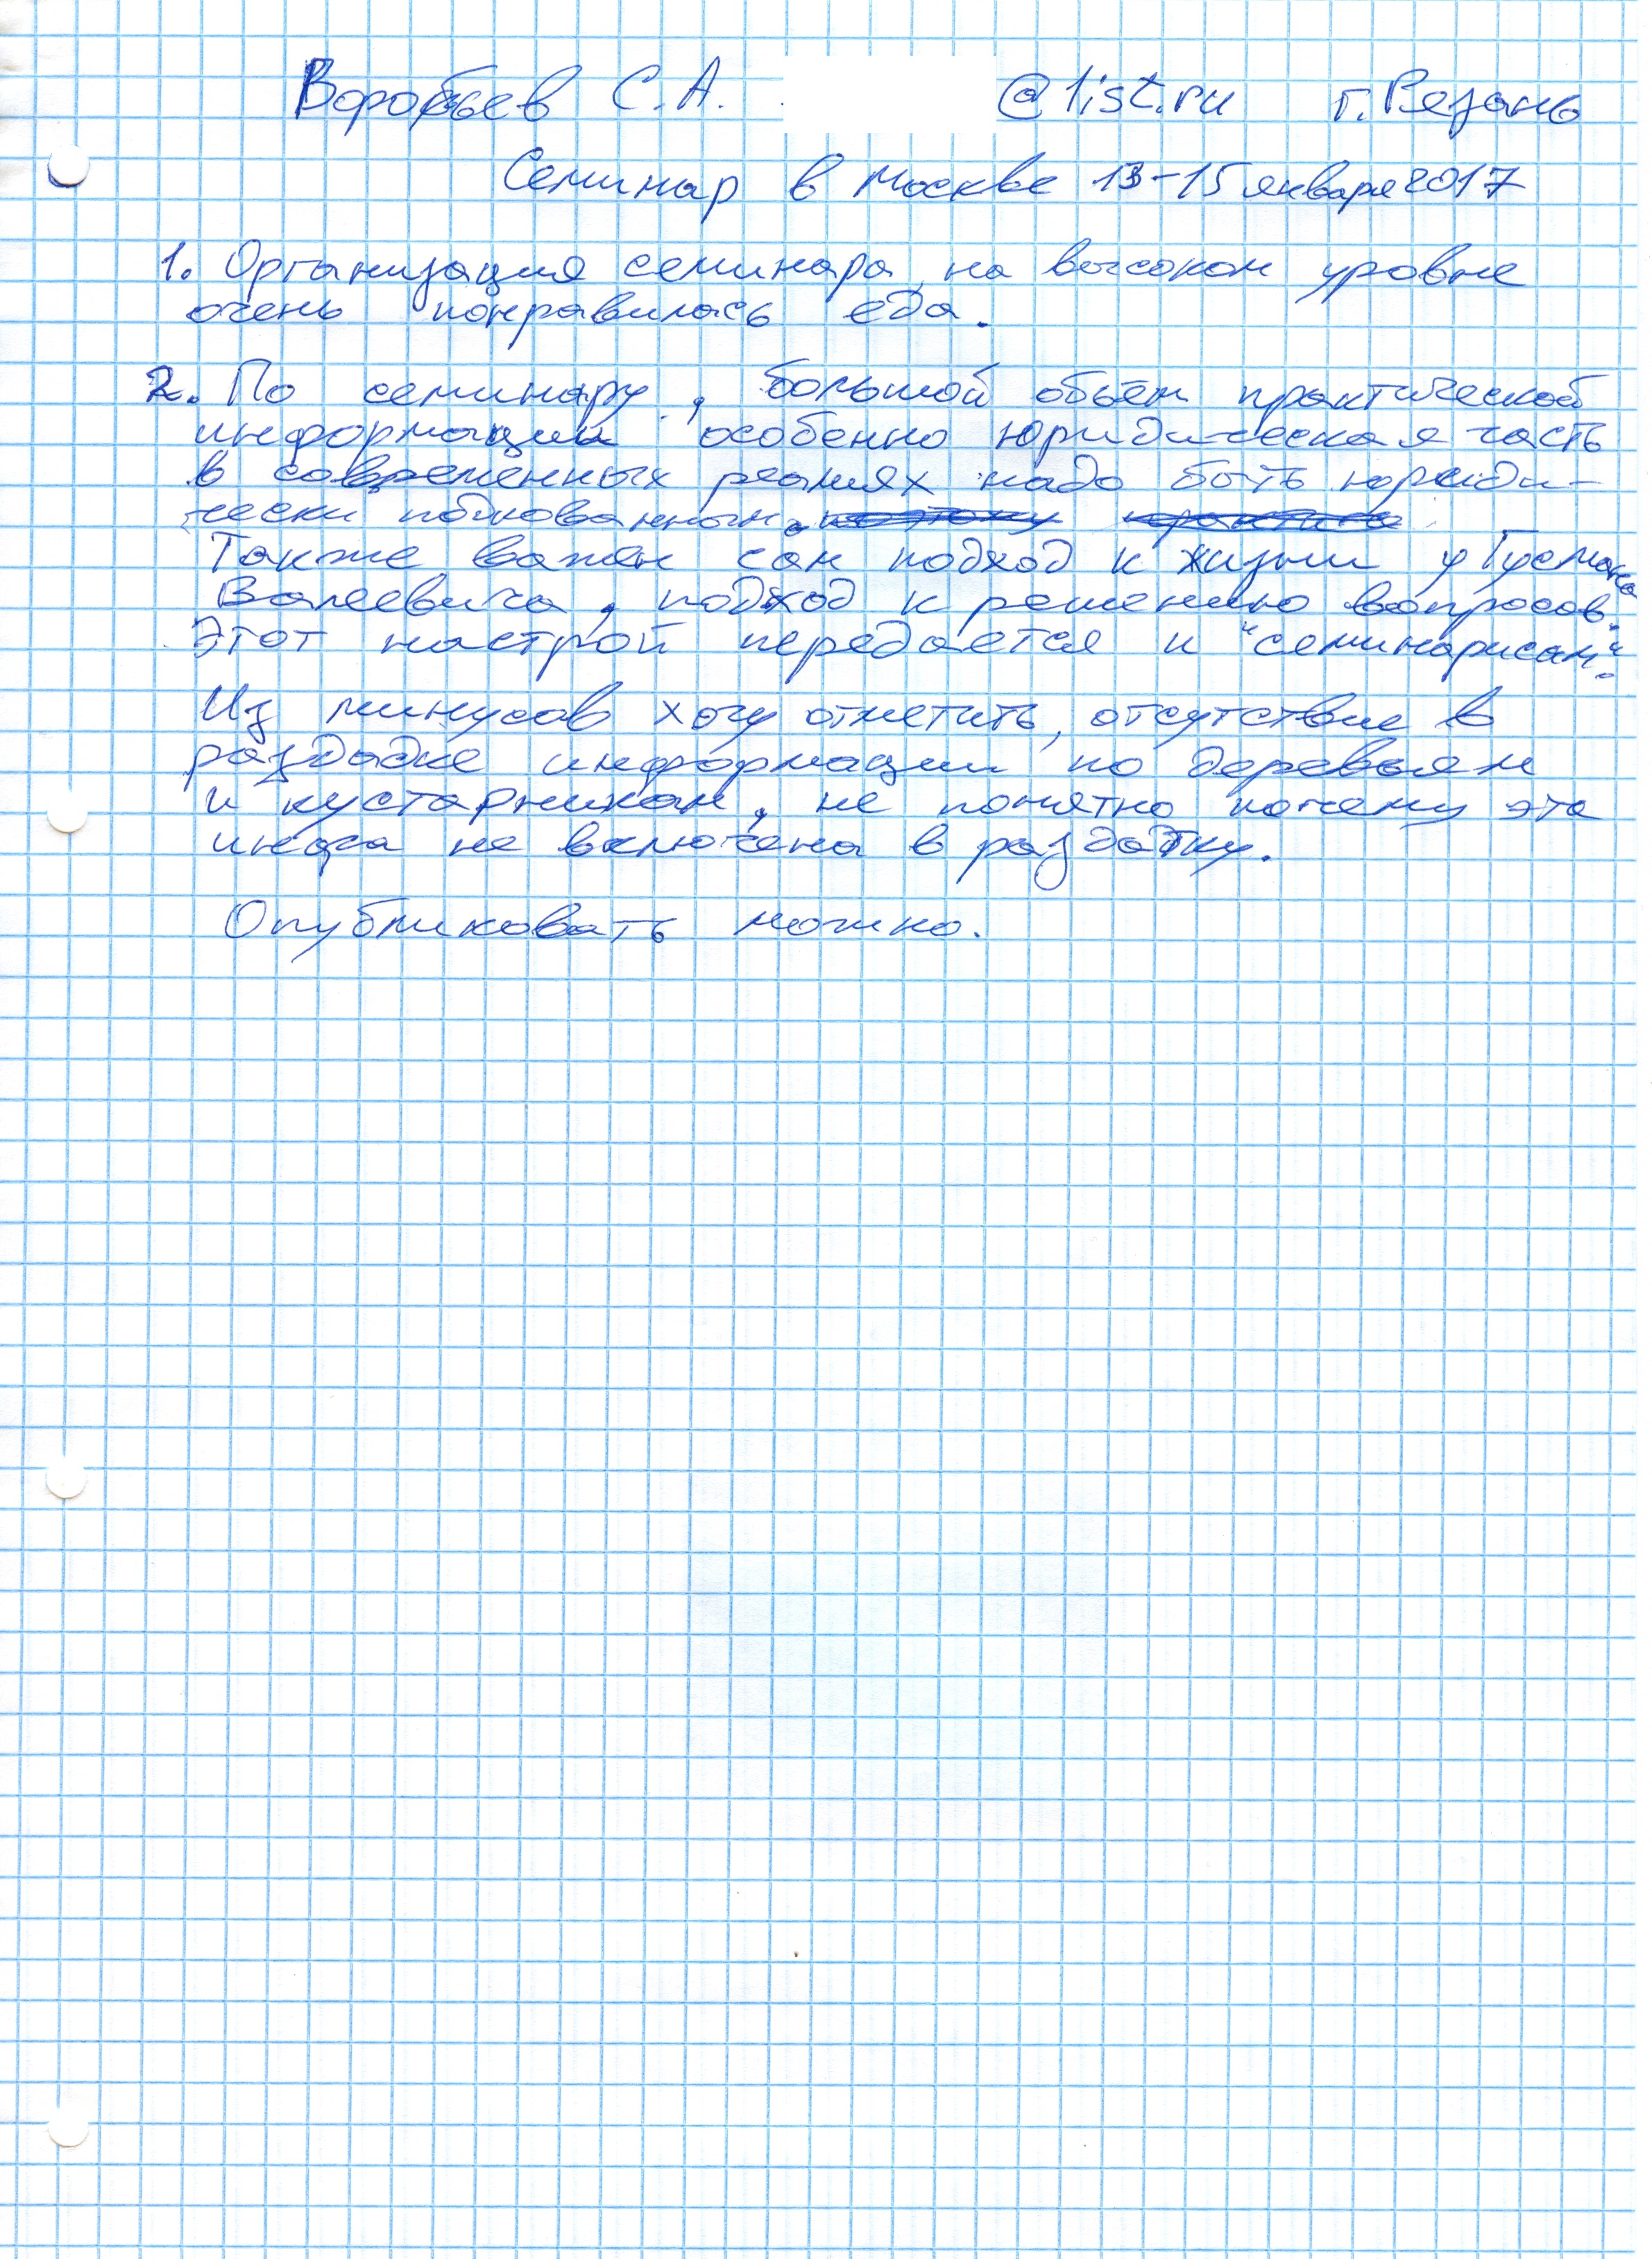 Воробьев С.А. @list.ru г. Рязань
Семинар в Москве 13-15 января 2017
1. Организация семинара на высоком уровне
очень понравилась еда.
2. По семинару, большой объём практической
информации особенно юридическая часть
в современных реалиях надо быть юриди-
чески подкованным.
Также важен сам подход к жизни у Гусмана
Валеевича, подход к решению вопросов.
Этот настрой передается и "семинарисам".
Из минусов хочу отметить, отсутствие в
раздадке информации по деревьям
и кустарникам, не понятно почему эта
инфа не включена в раздатку.
Опубликовать можно.